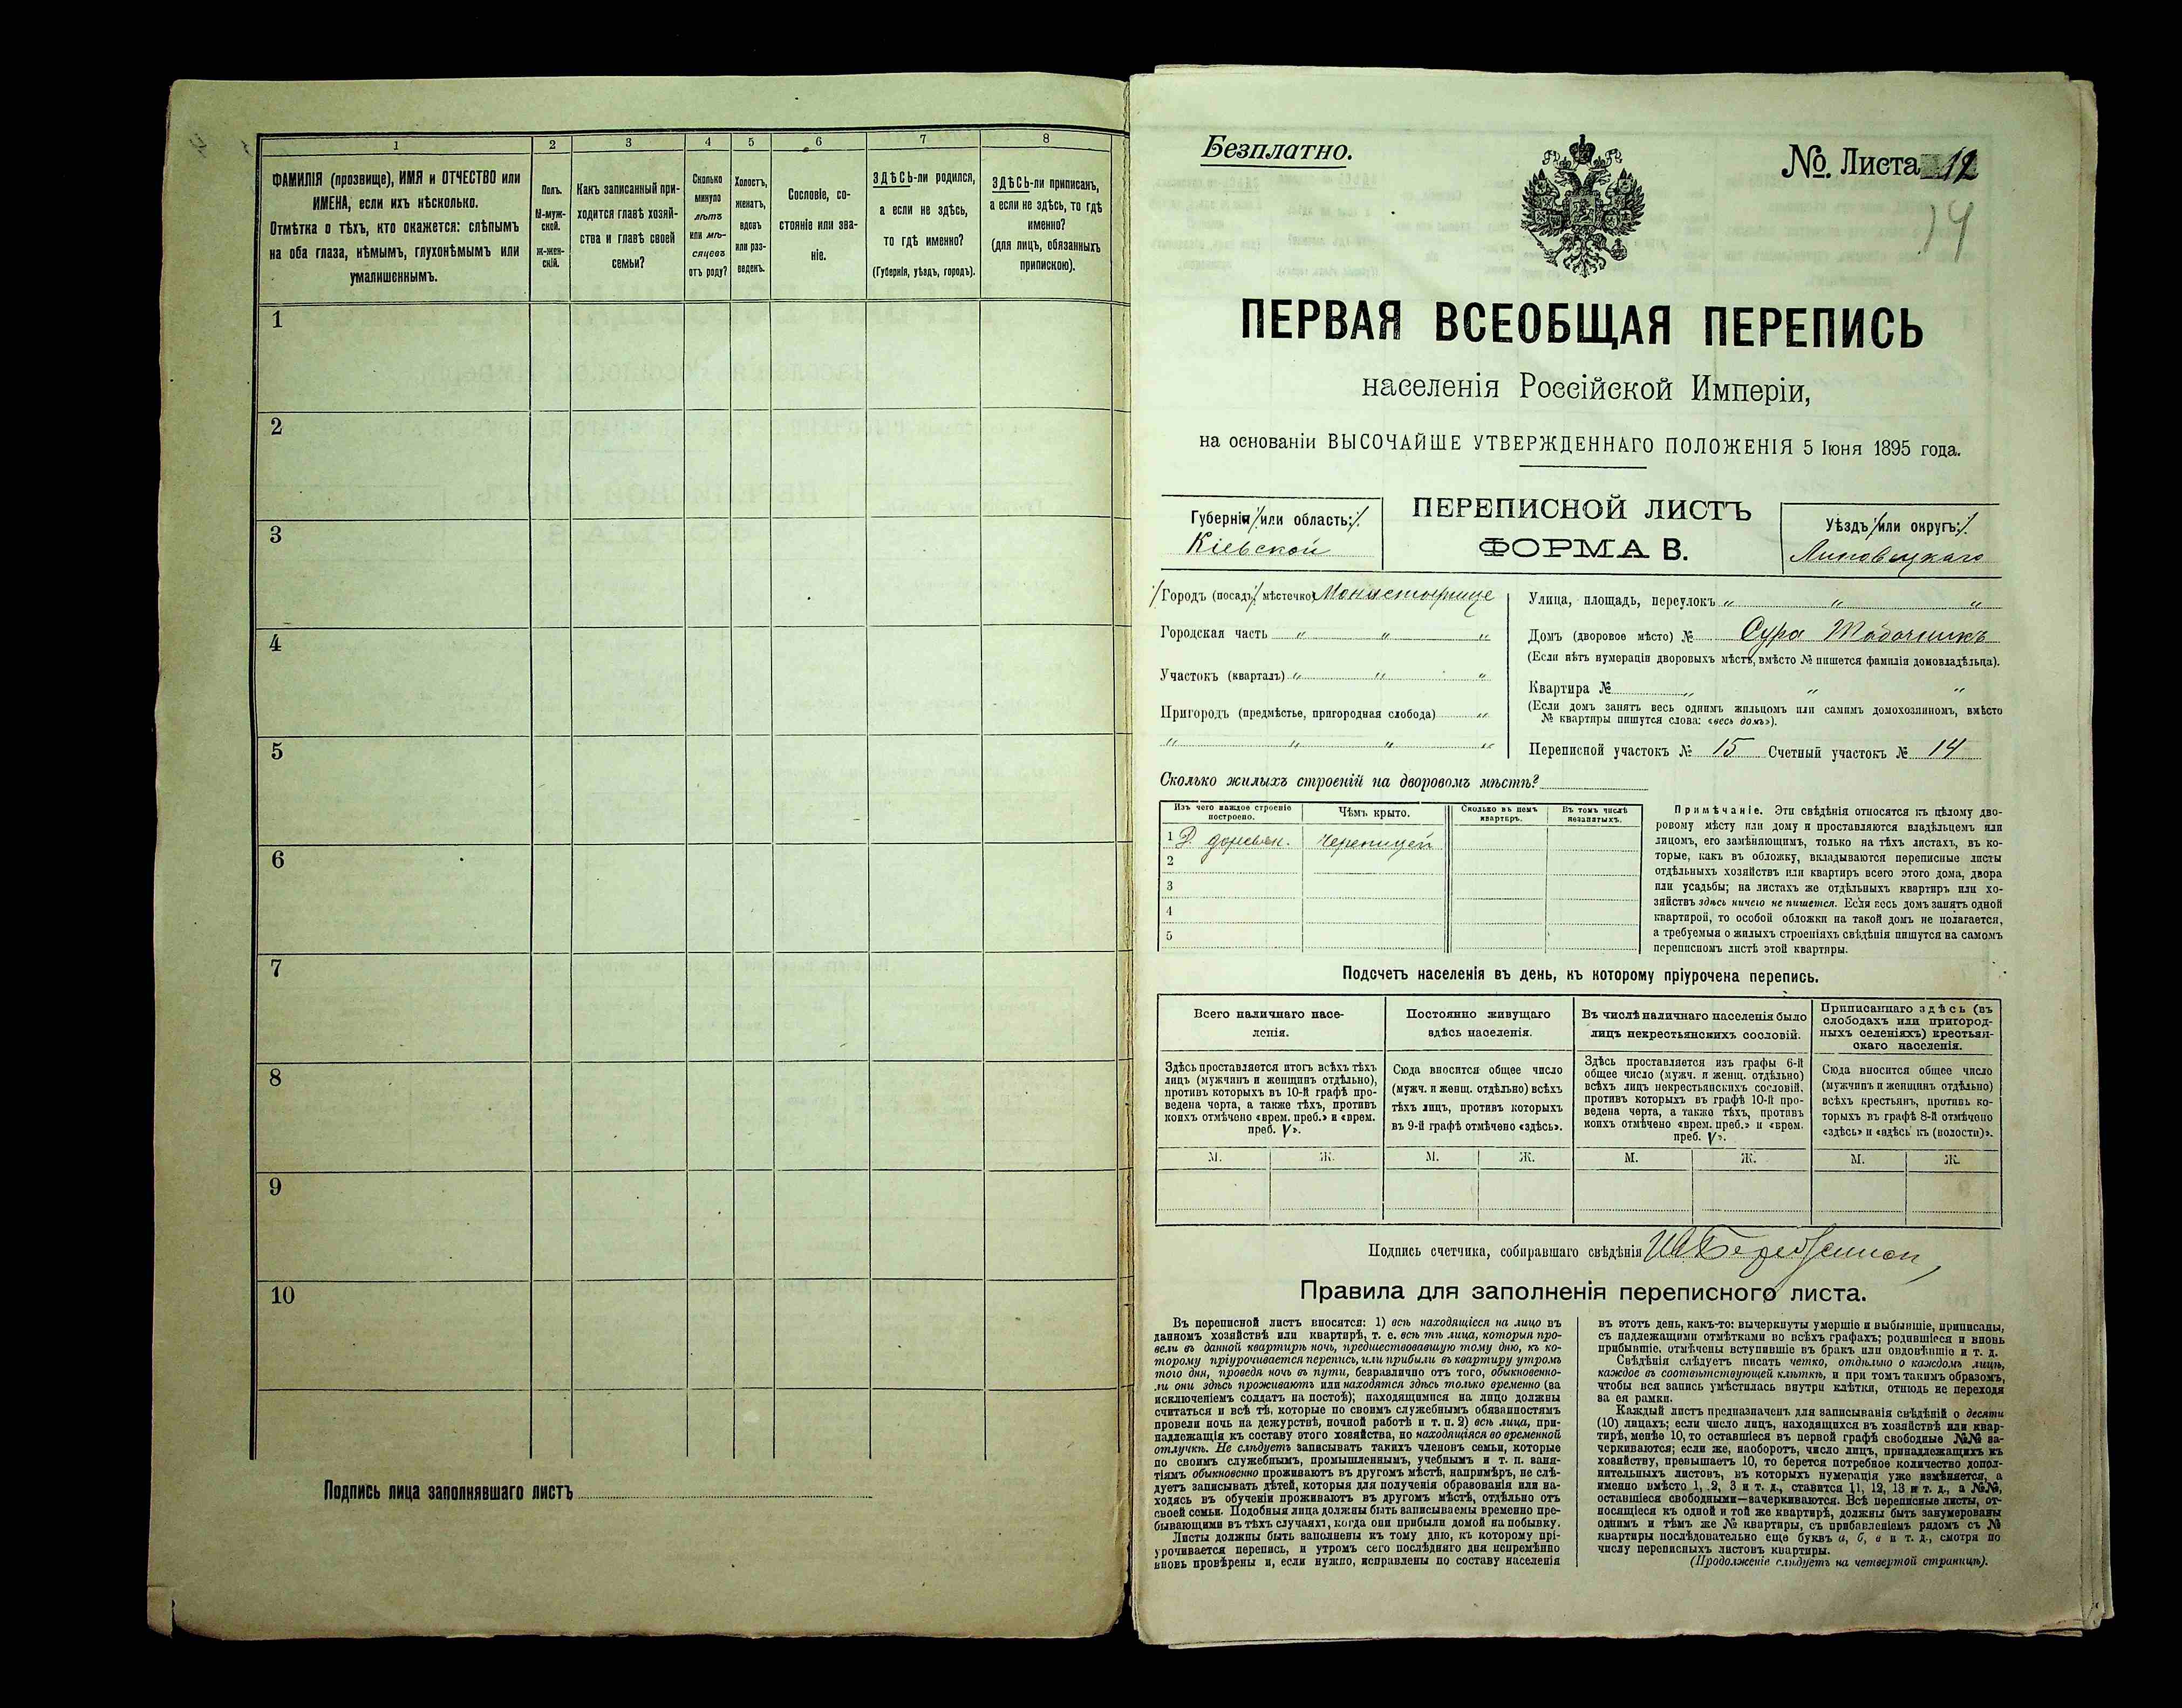 1 2 3 4 5 6 7 8
ФАМИЛІЯ (прозвище), ИМЯ и ОТЧЕСТВО или
ИМЕНА, если ихъ нѣсколько.
Отмѣтка о тѣхъ, кто окажется: слѣпымъ
на оба глаза, нѣмымъ, глухонѣмымъ или
умалишеннымъ.
Полъ.
М-муж-
ской.
Ж-жен-
скій.
Какъ записанный при-
ходится главѣ хозяй-
ства и главѣ своей
семьи?
Сколько
минуло
лѣтъ
или мѣ-
сяцевъ
отъ роду?
Холостъ,
женатъ,
вдовъ
или раз-
веденъ.
Сословіе, со-
стояніе или зва-
ніе.
ЗДѢСЬ-ли родился,
а если не здѣсь,
то гдѣ именно?
(Губернія, уѣздъ, городъ).
ЗДѢСЬ-ли приписанъ,
а если не здѣсь, то гдѣ
именно?
(для лицъ, обязанныхъ
припискою).
1
2
3
4
5
6
7
8
9
10
Подпись лица заполнявшаго листъ
Безплатно.
№. Листа 12
14
ПЕРВАЯ ВСЕОБЩАЯ ПЕРЕПИСЬ
населенія Россійской Имперіи,
на основаніи ВЫСОЧАЙШЕ УТВЕРЖДЕННАГО ПОЛОЖЕНІЯ 5 Іюня 1895 года.
Губернія (или область:)
Кіевской
ПЕРЕПИСНОЙ ЛИСТЪ
ФОРМА В.
Уѣздъ (или округъ:)
Липовецкаго
Городъ (посадъ, мѣстечко) Монастырище
Городская часть " " "
Участокъ (кварталъ) " " "
Пригородъ (предмѣстье, пригородная слобода) "
" " " "
Улица, площадь, переулокъ " " "
Домъ (дворовое мѣсто) № Сура Табачникъ
(Если нѣтъ нумераціи дворовыхъ мѣстъ, вмѣсто № пишется фамилія домовладѣльца).
Квартира № " " "
(Если домъ занятъ весь однимъ жильцомъ или самимъ домохозяиномъ, вмѣсто
№ квартиры пишутся слова: «весь домъ»).
Переписной участокъ № 15 Счетный участокъ № 14
Сколько жилыхъ строеній на дворовомъ мѣстѣ?
Изъ чего каждое строеніе
построено.
Чѣмъ крыто.
Сколько въ немъ
квартиръ.
Въ томъ числѣ
незанятыхъ.
1 деревян. Черепицей
2
3
4
5
Примѣчаніе. Эти свѣдѣнія относятся къ цѣлому дво-
ровому мѣсту или дому и проставляются владѣльцемъ или
лицомъ, его замѣняющимъ, только на тѣхъ листахъ, въ ко-
торые, какъ въ обложку, вкладываются переписные листы
отдѣльныхъ хозяйствъ или квартиръ всего этого дома, двора
или усадьбы; на листахъ же отдѣльныхъ квартиръ или хо-
зяйствъ здѣсь ничего не пишется. Если весь домъ занятъ одной
квартирой, то особой обложки на такой домъ не полагается,
а требуемыя о жилыхъ строеніяхъ свѣдѣнія пишутся на самомъ
переписномъ листѣ этой квартиры.
Подсчетъ населенія въ день, къ которому пріурочена перепись.
Всего наличнаго насе-
ленія.
Постоянно живущаго
здѣсь населенія.
Въ числѣ наличнаго населенія было
лицъ некрестьянскихъ сословій.
Приписаннаго здѣсь (въ
слободахъ или пригород-
ныхъ селеніяхъ) крестьян-
скаго населенія.
Здѣсь проставляется итогъ всѣхъ тѣхъ
лицъ (мужчинъ и женщинъ отдѣльно),
противъ которыхъ въ 10-й графѣ про-
ведена черта, а также тѣхъ, противъ
коихъ отмѣчено «врем. преб.» и «врем.
преб. V».
Сюда вносится общее число
(мужч. и женщ. отдѣльно) всѣхъ
тѣхъ лицъ, противъ которыхъ
въ 9-й графѣ отмѣчено «здѣсь».
Здѣсь проставляется изъ графы 6-й
общее число (мужч. и женщ. отдѣльно)
всѣхъ лицъ некрестьянскихъ сословій,
противъ которыхъ въ графѣ 10-й про-
ведена черта, а также тѣхъ, противъ
коихъ отмѣчено «врем. преб.» и «врем.
преб. V».
Сюда вносится общее число
(мужчинъ и женщинъ отдѣльно)
всѣхъ крестьянъ, противъ ко-
торыхъ въ графѣ 8-й отмѣчено
«здѣсь» и «здѣсь къ (волости)».
М. Ж. М. Ж. М. Ж. М. Ж.
Подпись счетчика, собиравшаго свѣдѣнія
Правила для заполненія переписного листа.
Въ переписной листъ вносятся: 1) всѣ находящіеся на лицо въ
данномъ хозяйствѣ или квартирѣ, т. е. всѣ тѣ лица, которыя про-
вели въ данной квартирѣ ночь, предшествовавшую тому дню, къ ко-
торому пріурочивается перепись, или прибыли въ квартиру утромъ
того дня, проведя ночь въ пути, безразлично отъ того, обыкновенно-
ли они здѣсь проживаютъ или находятся здѣсь только временно (за
исключеніемъ солдатъ на постоѣ); находящимися на лицо должны
считаться и всѣ тѣ, которые по своимъ служебнымъ обязанностямъ
провели ночь на дежурствѣ, ночной работѣ и т. п. 2) всѣ лица, при-
надлежащія къ составу этого хозяйства, но находящіяся во временной
отлучкѣ. Не слѣдуетъ записывать такихъ членовъ семьи, которые
по своимъ служебнымъ, промышленнымъ, учебнымъ и т. п. заня-
тіямъ обыкновенно проживаютъ въ другомъ мѣстѣ, напримѣръ, не слѣ-
дуетъ записывать дѣтей, которыя для полученія образованія или на-
ходясь въ обученіи проживаютъ въ другомъ мѣстѣ, отдѣльно отъ
своей семьи. Подобныя лица должны быть записываемы временно пре-
бывающими въ тѣхъ случаяхъ, когда они прибыли домой на побывку.
Листы должны быть заполнены къ тому дню, къ которому прі-
урочивается перепись, и утромъ сего послѣдняго дня непремѣнно
вновь провѣрены и, если нужно, исправлены по составу населенія
въ этотъ день, какъ-то: вычеркнуты умершіе и выбывшіе, приписаны,
съ надлежащими отмѣтками во всѣхъ графахъ; родившіеся и вновь
прибывшіе, отмѣчены вступившіе въ бракъ или овдовѣвшіе и т. д.
Свѣдѣнія слѣдуетъ писать четко, отдѣльно о каждомъ лицѣ,
каждое въ соотвѣтствующей клѣткѣ, и при томъ такимъ образомъ,
чтобы вся запись умѣстилась внутри клѣтки, отнюдь не переходя
за ея рамки.
Каждый листъ предназначенъ для записыванія свѣдѣній о десяти
(10) лицахъ; если число лицъ, находящихся въ хозяйствѣ или квар-
тирѣ, менѣе 10, то оставшіеся въ первой графѣ свободные №№ за-
черкиваются; если же, наоборотъ, число лицъ, принадлежащихъ къ
хозяйству, превышаетъ 10, то берется потребное количество допол-
нительныхъ листовъ, въ которыхъ нумерація уже измѣняется, а
именно вмѣсто 1, 2, 3 и т. д., ставится 11, 12, 13 и т. д., а №№,
оставшіеся свободными—зачеркиваются. Всѣ переписные листы, от-
носящіеся къ одной и той же квартирѣ, должны быть занумерованы
однимъ и тѣмъ же № квартиры, съ прибавленіемъ рядомъ съ №
квартиры послѣдовательно еще буквъ а, б, в и т. д., смотря по
числу переписныхъ листовъ квартиры.
(Продолженіе слѣдуетъ на четвертой страницѣ).